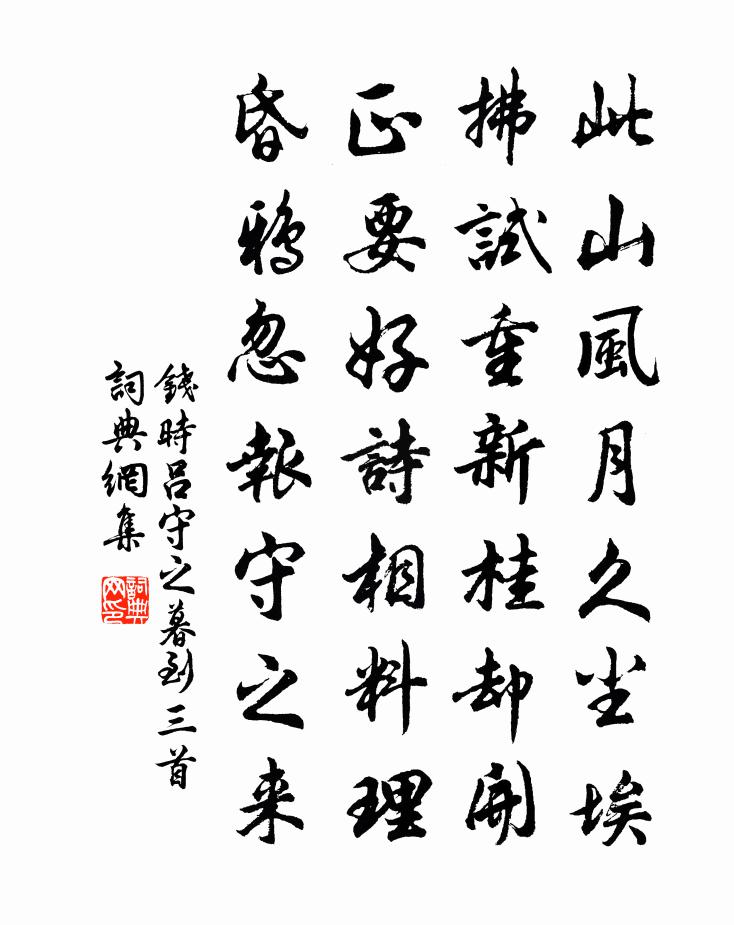 此山風月久尘埃
拂試重新桂却開
正要好詩相料理
昏鴉忽報守之来
錢時呂守之暮到三首
詞典網集
詞典网印